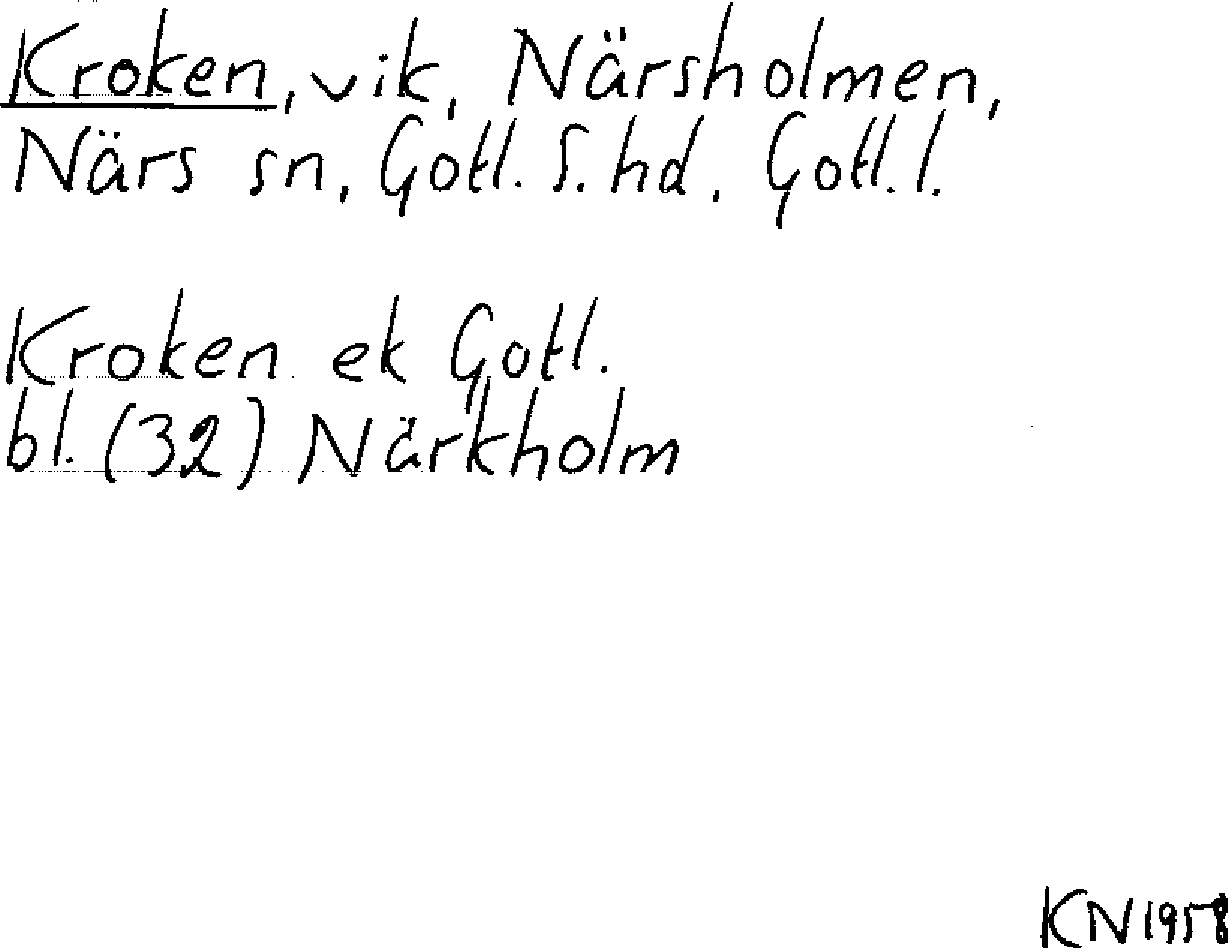 Kroken, vik, Närsholmen,
Närs sn, Gotl. S. hd, Gotl. l.
Kroken ek Gotl.
bl. (32) Närkholm
KN 1958